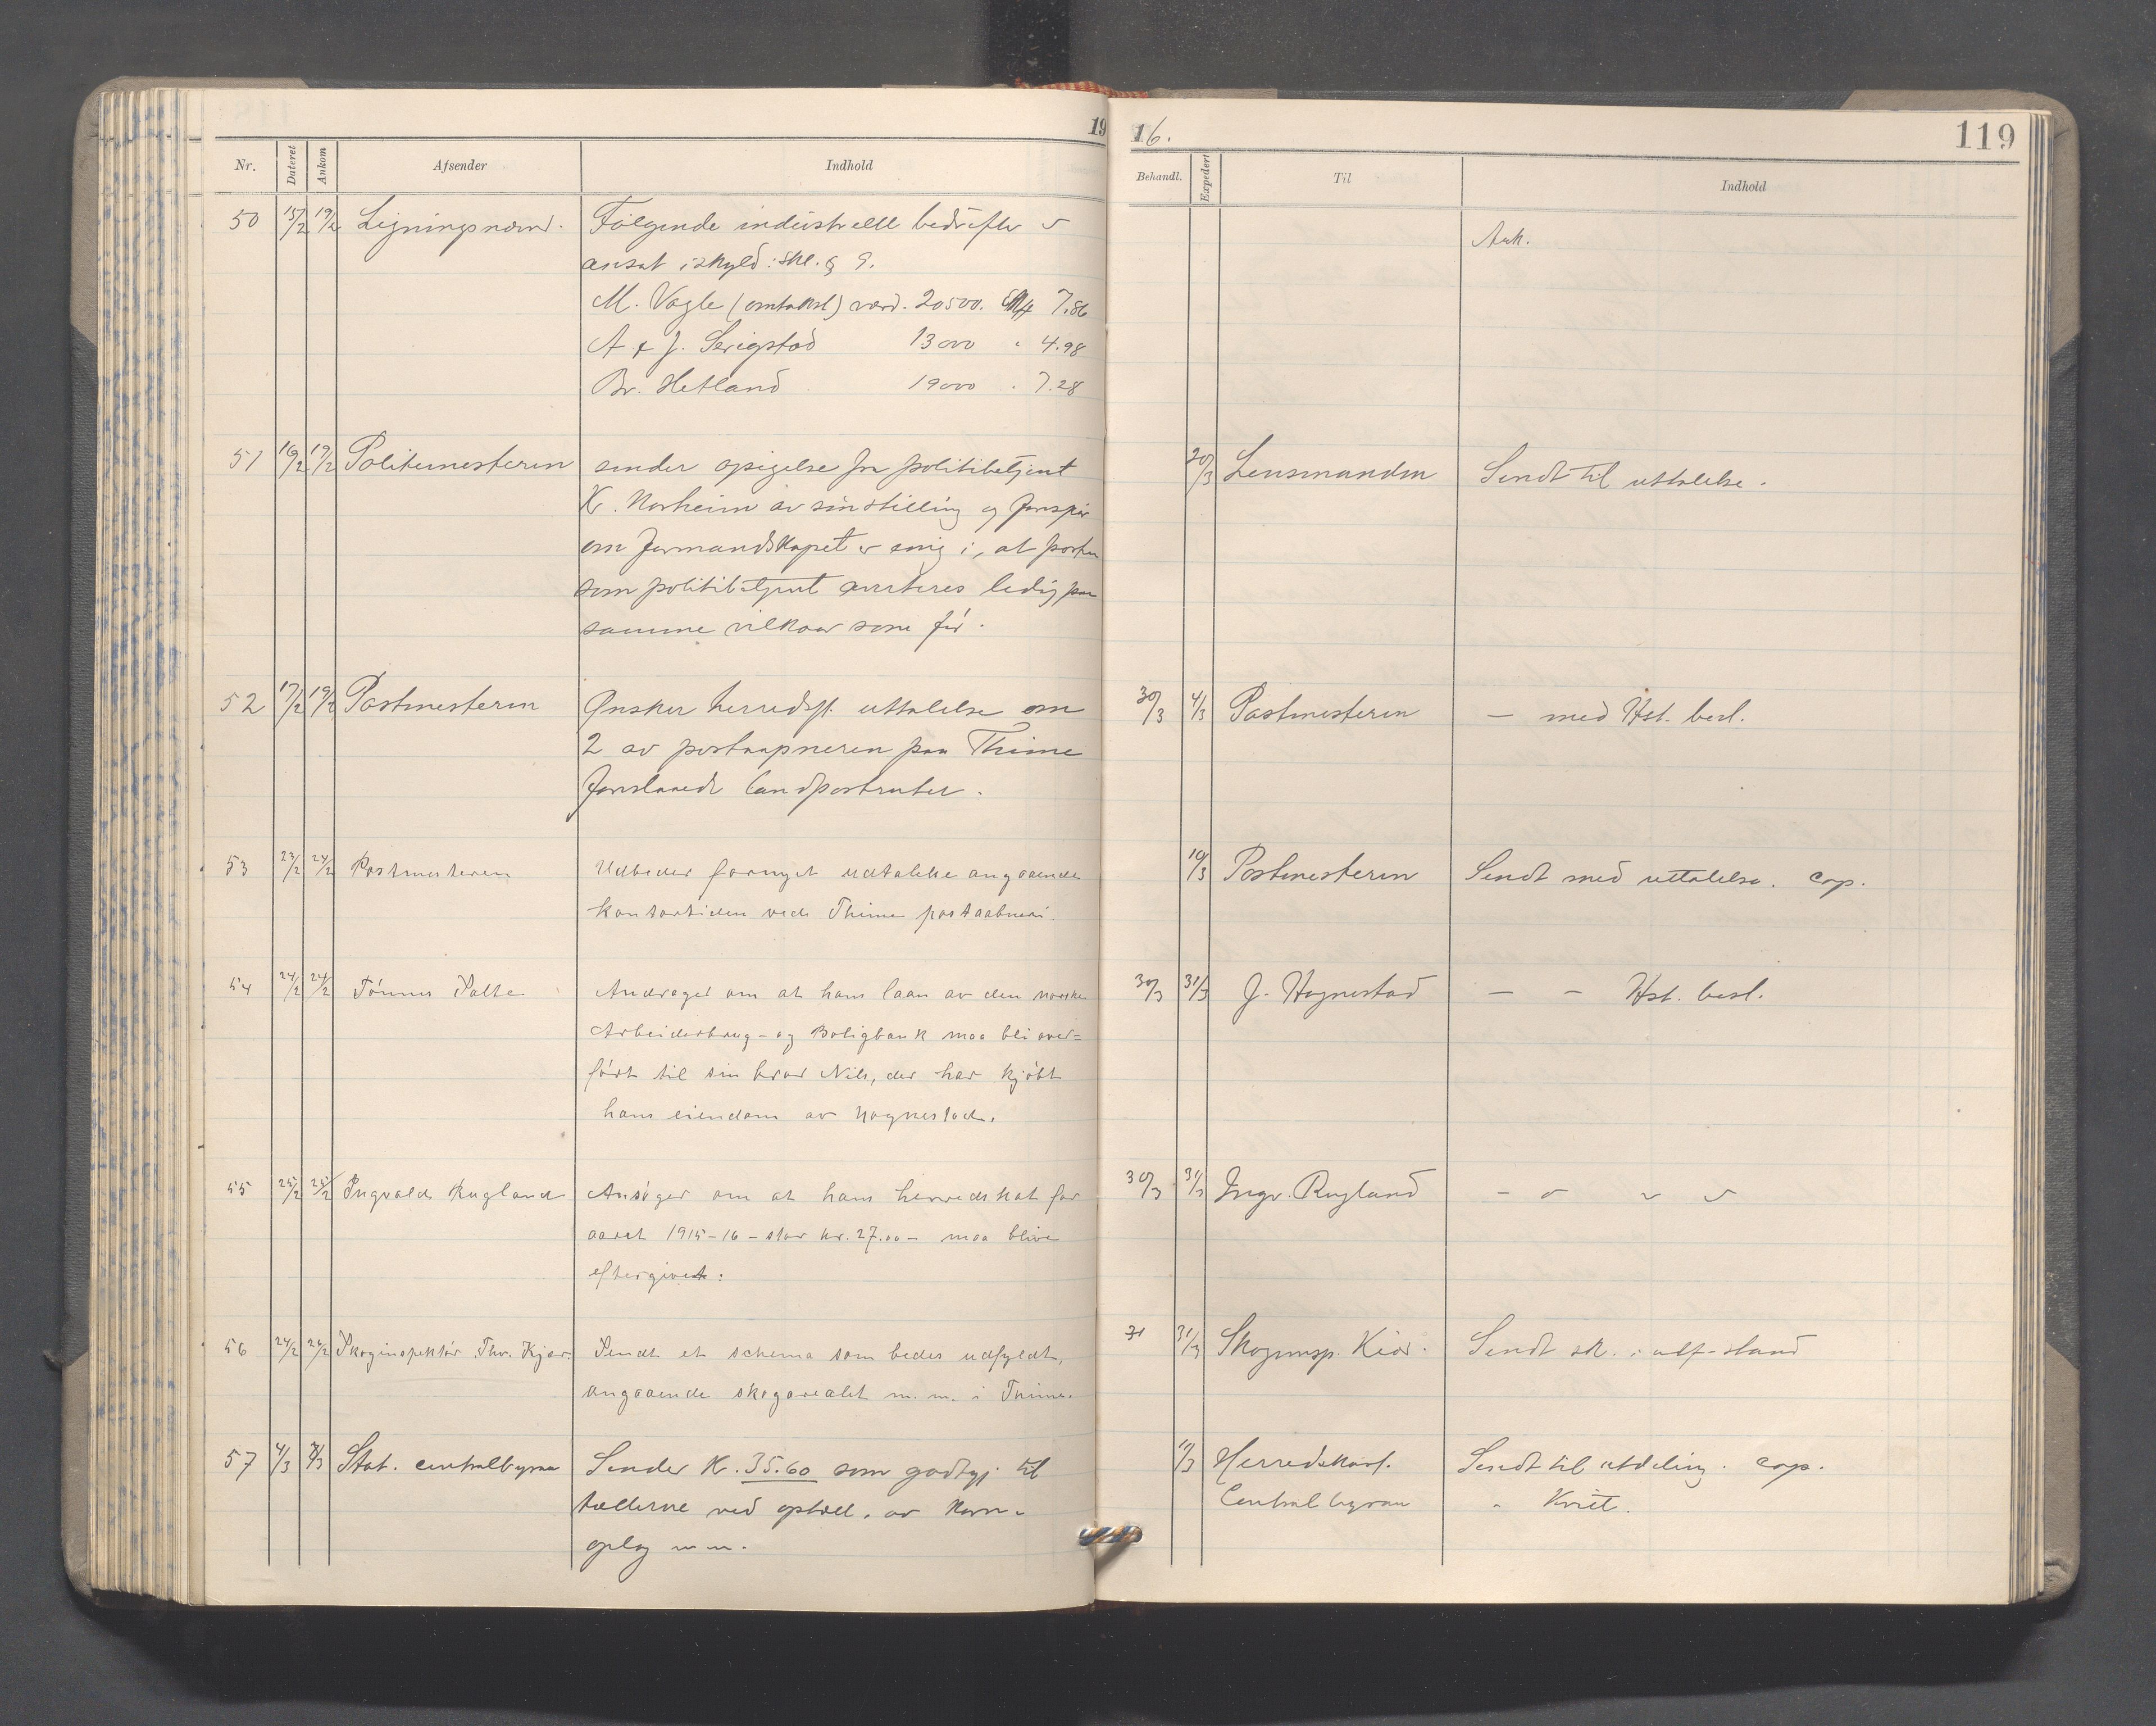 1916.
119
Nr. Dateret Ankom Afsender Indhold Behandl. Expedert Til Indhold
50 15/2 19/2 Ligningsnævnd. Følgende industrielle bedrifter er
ansat i skyld: skl. § 9.
M. Vagle (omtakst) værd. 20500. 7.86
A & J. Serigstad 13000 " 4.98
Br. Hetland 19000 . 7.28
Ark.
51 16/2 19/2 Politimesteren sender opsigelse fra politibetjent
K. Norheim av sin stilling og forspør
om formandskapet er enig i, at posten
som politibetjent averteres ledig paa
samme vilkaar som før.
20/3 Lensmanden Sendt til uttalelse.
52 17/2 19/2 Postmesteren Ønsker herredsst. uttalelse om
2 av postaapneren paa Thime
foreslaaede landpostruter.
30/3 4/3 Postmesteren — med Hst. besl.
53 23/2 24/2 Postmesteren Udbeder fornyet udtalelse angaaende
kontortiden ved Thime postaabneri.
10/3 Postmesteren Sendt med uttalelse. Cop.
54 24/2 24/2 Tønnes Salte Andrager om at hans laan av den norske
Arbeiderbrug- og Boligbank maa bli over=
ført til sin bror Nils, der har kjøbt
hans eiendom av Hognestad.
30/3 31/3 J. Hognestad — — Hst. besl.
55 25/2 25/2 Ingvald Rugland Ansøger om at hans herredskat for
aaret 1915-16 - stor kr. 27.00 - maa blive
eftergivet.
30/3 31/3 Ingv. Rugland - " " "
56 24/2 26/2 Skoginspektør Thv. Kjær. Sendt et schema som bedes udfyldt,
angaaende skogarealet m.m. i Thime.
31/3 Skoginsp. Kiær. Sendt sk. i utf. stand
57 4/3 7/3 Stat. centralbyraa Sender Kr. 35.60 som godtgj til
tællerne ved optæll. av korn-
oplag m m.
10/3 Herredskass. Sendt til utdeling. Cop.
Centralbyraa " Kvit.